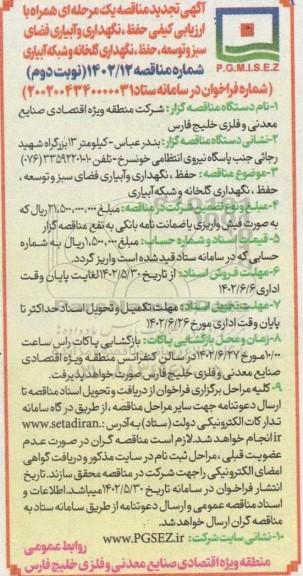 آگهی تجدید مناقصه یک مرحله ای همراه با
ارزیابی کیفی حفظ ، نگهداری و آبیاری فضای
سبز و توسعه ، حفظ ، نگهداری گلخانه و شبکه آبیاری
شماره مناقصه ۱۴۰۲/۱۲ (نوبت دوم)
P.G.M.I.S.E.Z
(شماره فراخوان در سامانه ستاد ۲۰۰۲۰۰۴۳۴۰۰۰۰۰۳۱)
۱-نام دستگاه مناقصه گزار: شرکت منطقه ویژه اقتصادی صنایع
معدنی و فلزی خلیج فارس
۲-نشانی دستگاه مناقصه گزار: بندرعباس - کیلومتر ۱۳ بزرگراه شهید
رجائی جنب پاسگاه نیروی انتظامی خونسرخ - تلفن ۳۳۵۹۲۲۰۱۰ (۰۷۶)
۳-موضوع مناقصه: حفظ ، نگهداری و آبیاری فضای سبز و توسعه ،
حفظ ، نگهداری گلخانه و شبکه آبیاری
۴-مبلغ و نوع تضمین شرکت در مناقصه: مبلغ ۲۱,۵۰۰,۰۰۰,۰۰۰ ریال که
به صورت فیش واریزی یا ضمانت نامه بانکی به نفع مناقصه گزار
۵-قیمت اسناد و شماره حساب: مبلغ ۱,۵۰۰,۰۰۰ ریال به شماره
حسابی که در سامانه ستاد قید شده است واریز گردد.
۶-مهلت فروش اسناد: از تاریخ ۱۴۰۲/۵/۳۰ لغایت پایان وقت
اداری ۱۴۰۲/۶/۶
۷-مهلت تحویل اسناد: مهلت تکمیل و تحویل اسناد حداکثر تا
پایان وقت اداری مورخ ۱۴۰۲/۶/۲۶
۸-زمان و محل بازگشایی پاکات: بازگشایی پاکات راس ساعت
۱۰/۰۰ مورخ ۱۴۰۲/۶/۲۷ در سالن کنفرانس منطقه ویژه اقتصادی
صنایع معدنی و فلزی خلیج فارس صورت خواهد پذیرفت.
۹-کلیه مراحل برگزاری فراخوان از دریافت و تحویل اسناد مناقصه تا
ارسال دعوتنامه جهت سایر مراحل مناقصه ، از طریق درگاه سامانه
تدارکات الکترونیکی دولت (ستاد) به آدرس: www.setadiran.
ir انجام خواهد شد. لازم است مناقصه گران در صورت عدم
عضویت قبلی ، مراحل ثبت نام در سایت مذکور و دریافت گواهی
امضای الکترونیکی را جهت شرکت در مناقصه محقق سازند. تاریخ
انتشار فراخوان در سامانه تاریخ ۱۴۰۲/۵/۳۰ میباشد. اطلاعات و
اسناد مناقصه عمومی و ارسال دعوتنامه از طریق سامانه ستاد به
مناقصه گران ارسال خواهد شد.
۱۰-نشانی سایت شرکت: www.PGSEZ.ir
روابط عمومی
منطقه ویژه اقتصادی صنایع معدنی و فلزی خلیج فارس